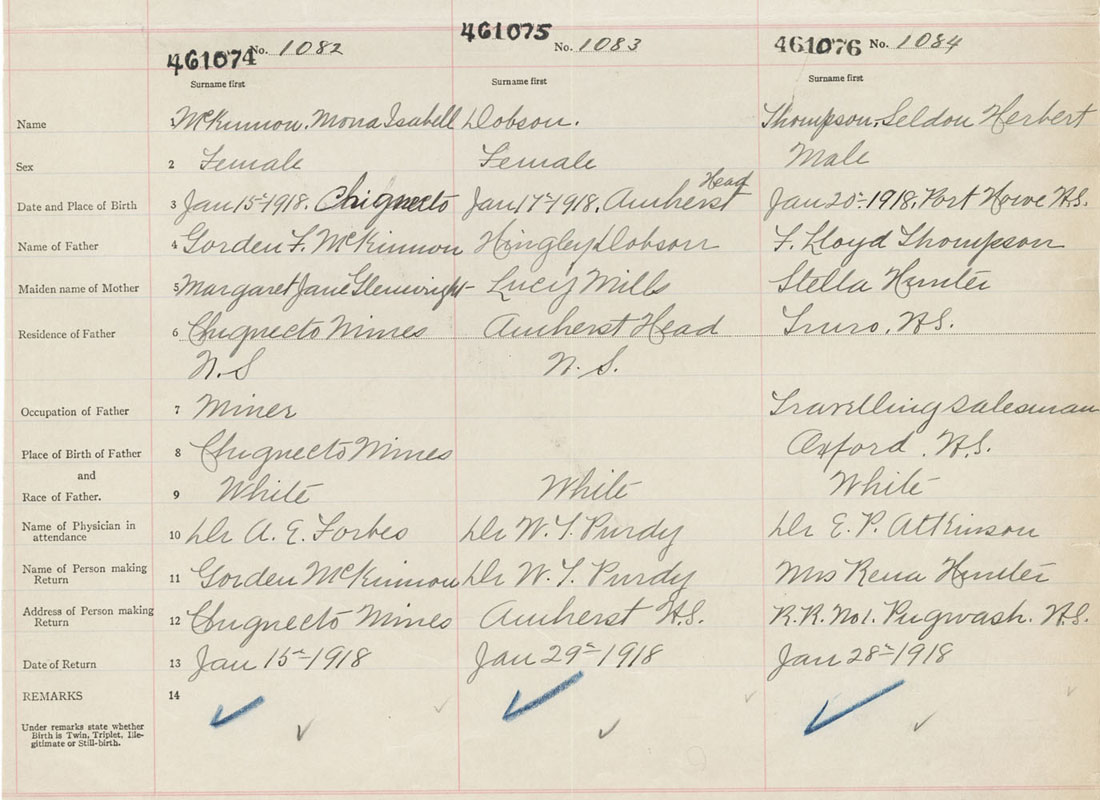 461074 No. 1082 461075 No. 1083 461076 No. 1084
Surname first Surname first Surname first
Name 1 McKinnon, Mona Isabell Dobson. Thompson, Seldon Herbert
Sex 2 Female Female Male
Date and Place of Birth 3 Jan 15th 1918. Chignecto Jan 17th 1918. Amherst Head Jan 20th 1918. Port Howe N.S.
Name of Father 4 Gorden F. McKinnon Hingley Dobson F. Lloyd Thompson
Maiden name of Mother 5 Margaret Jane Glenwright Lucy Mills Stella Hunter
Residence of Father 6 Chignecto Mines Amherst Head Truro, N.S.
N.S N.S.
Occupation of Father 7 Miner Travelling Salesman
Place of Birth of Father 8 Chignecto Mines Oxford, N.S.
and
Race of Father. 9 White White White
Name of Physician in attendance 10 Dr A. E. Forbes Dr W. T. Purdy Dr E. P. Attkinson
Name of Person making Return 11 Gorden McKinnon Dr W. T. Purdy Mrs Rena Hunter
Address of Person making Return 12 Chignecto Mines Amherst N.S. R.R. No 1. Pugwash. N.S.
Date of Return 13 Jan 15th 1918 Jan 29th 1918 Jan 28th 1918
REMARKS 14
Under remarks state whether
Birth is Twin, Triplet, Ille-
gitimate or Still-birth.